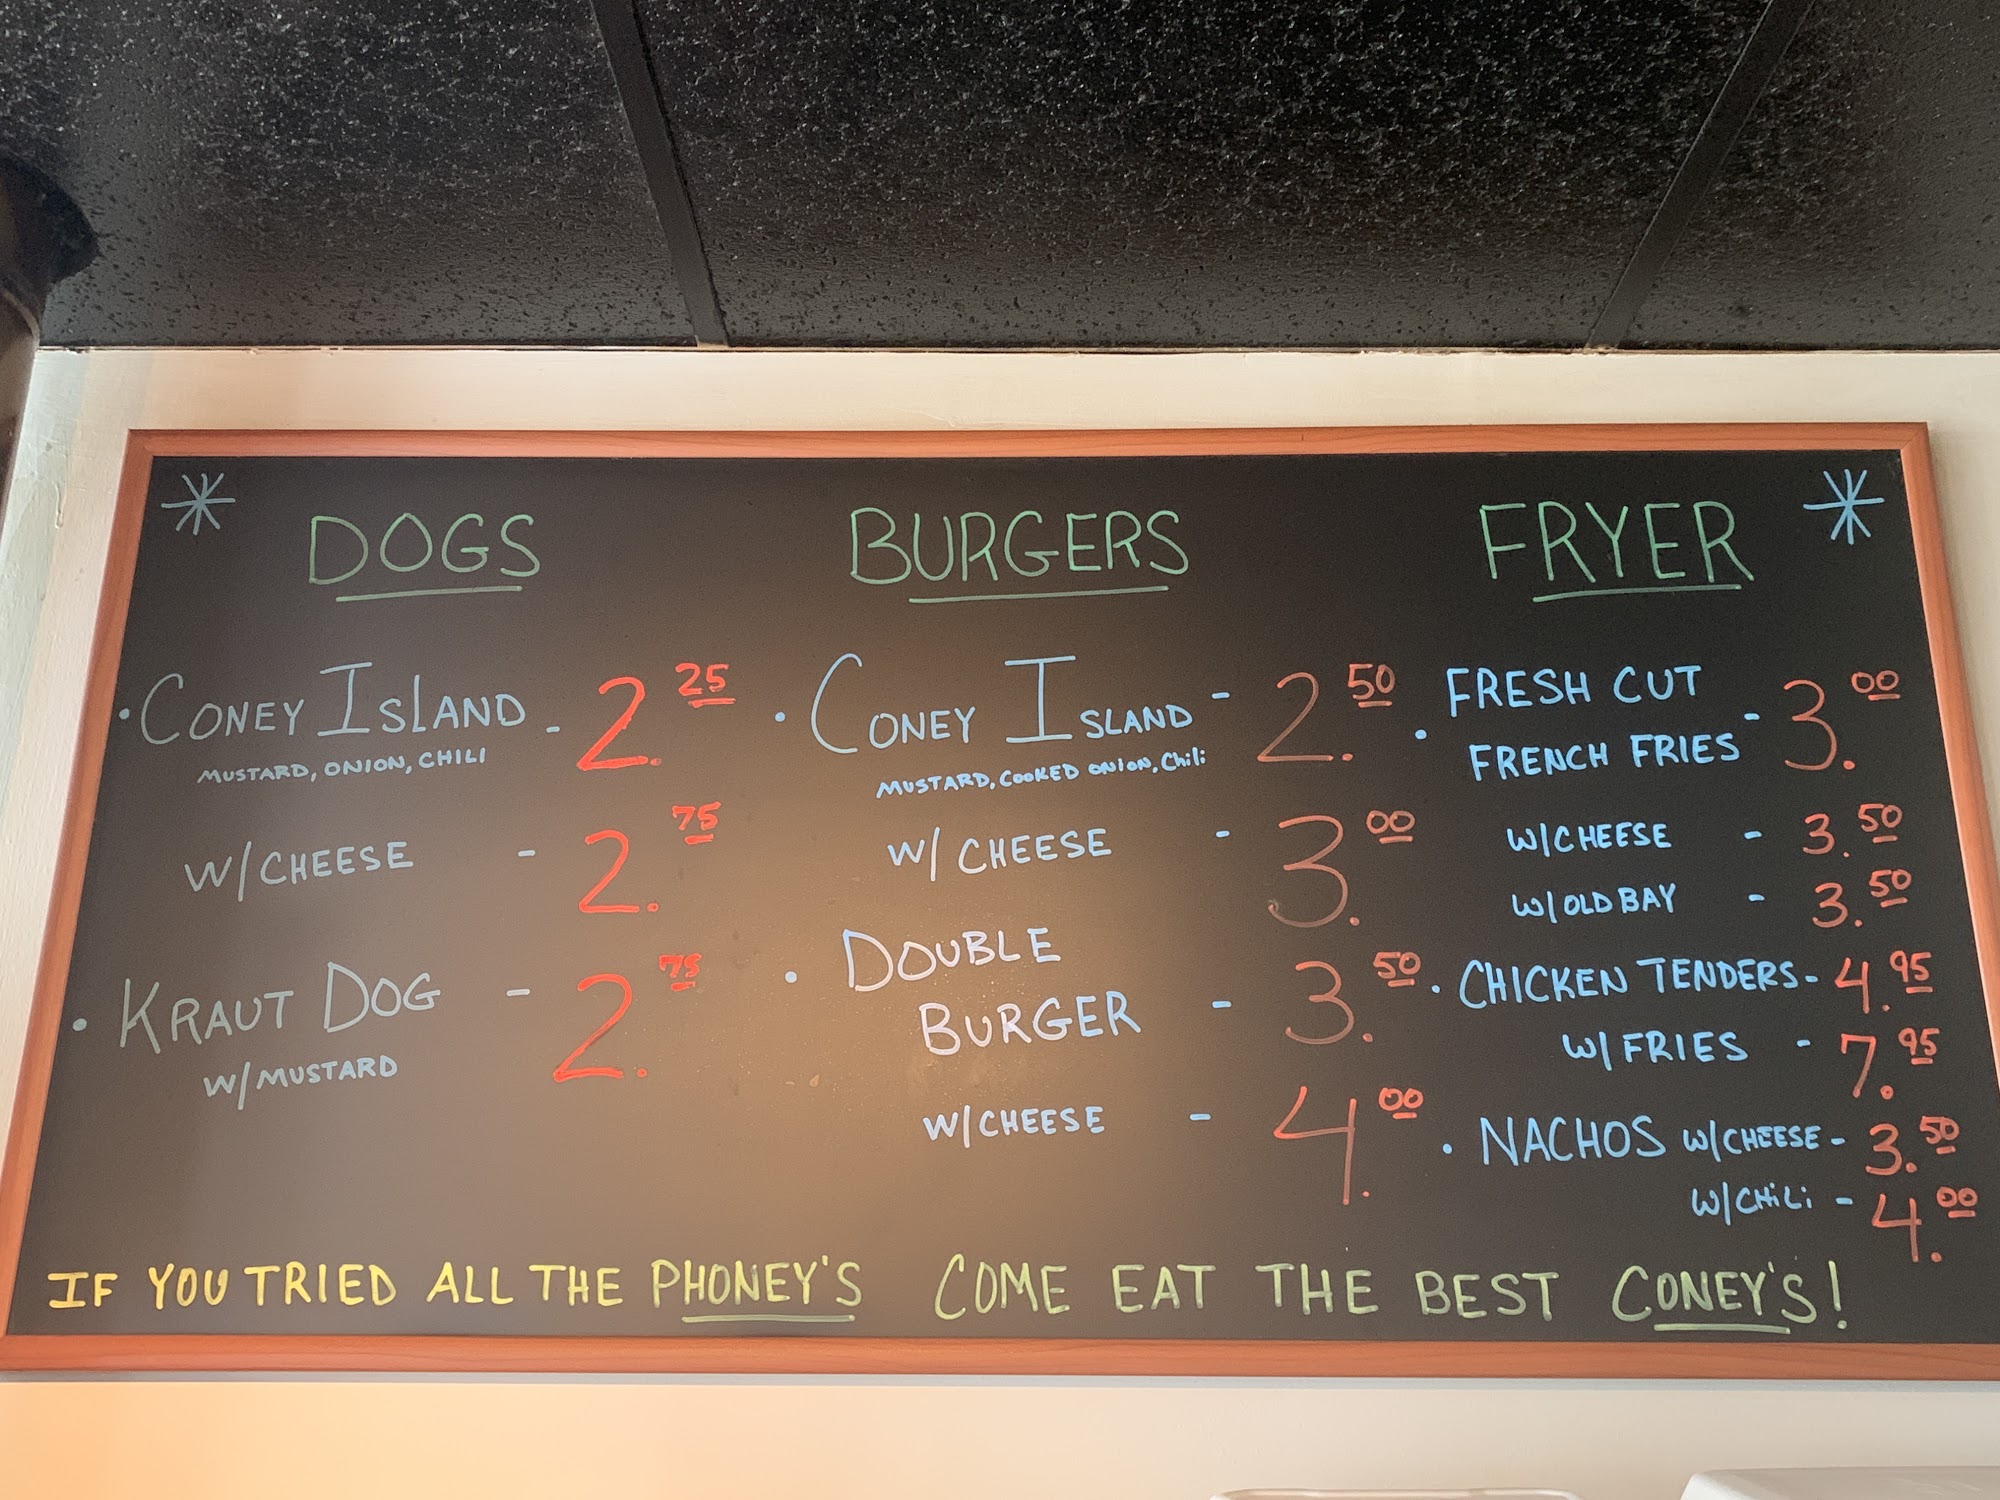 DOGS
• CONEY ISLAND - 2.25
MUSTARD, ONION, CHILI
W/CHEESE - 2.75
• KRAUT DOG - 2.75
W/MUSTARD
BURGERS
• CONEY ISLAND - 2.50
MUSTARD, COOKED ONION, Chili
W/ CHEESE - 3.00
• DOUBLE
BURGER - 3.50
W/CHEESE - 4.00
FRYER
• FRESH CUT
FRENCH FRIES - 3.00
W/CHEESE - 3.50
W/OLD BAY - 3.50
• CHICKEN TENDERS - 4.95
W/FRIES - 7.95
• NACHOS W/CHEESE - 3.50
W/CHiLi - 4.00
IF YOU TRIED ALL THE PHONEY'S COME EAT THE BEST CONEY'S!